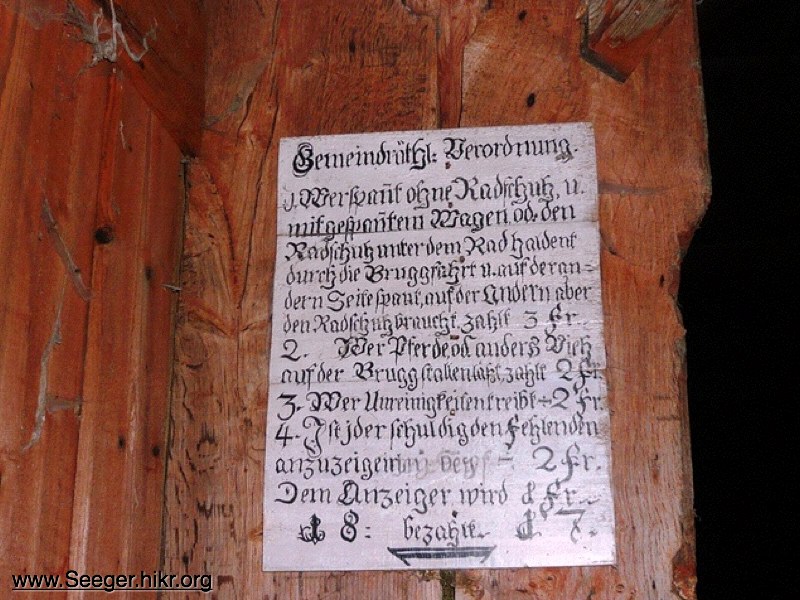 Gemeindräthl: Verordnung.
1. Wer span̄t ohne Radschuh, u.
mit gespan̄tem Wagen, od. den
Radschuh unter dem Rad haldent
durch die Brugg führt u. auf der an=
dern Seite span̄t, auf der Andern aber
den Radschuh braucht, zahlt 3 Fr.
2. Wer Pferde od. anders Vieh
auf der Brugg stallen läßt, zahlt 2 Fr.
3. Wer Unreinigkeiten treibt = 2 Fr.
4. Ist jder schuldig den Fehlenden
anzuzeigen 2 Fr.
Dem Anzeiger wird Fr.
18: bezahlt. 7.
www.Seeger.hikr.org